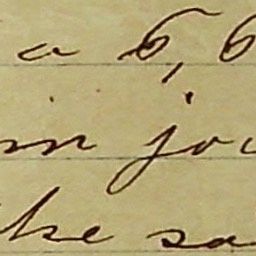 a 6, 6
in jou
the sa